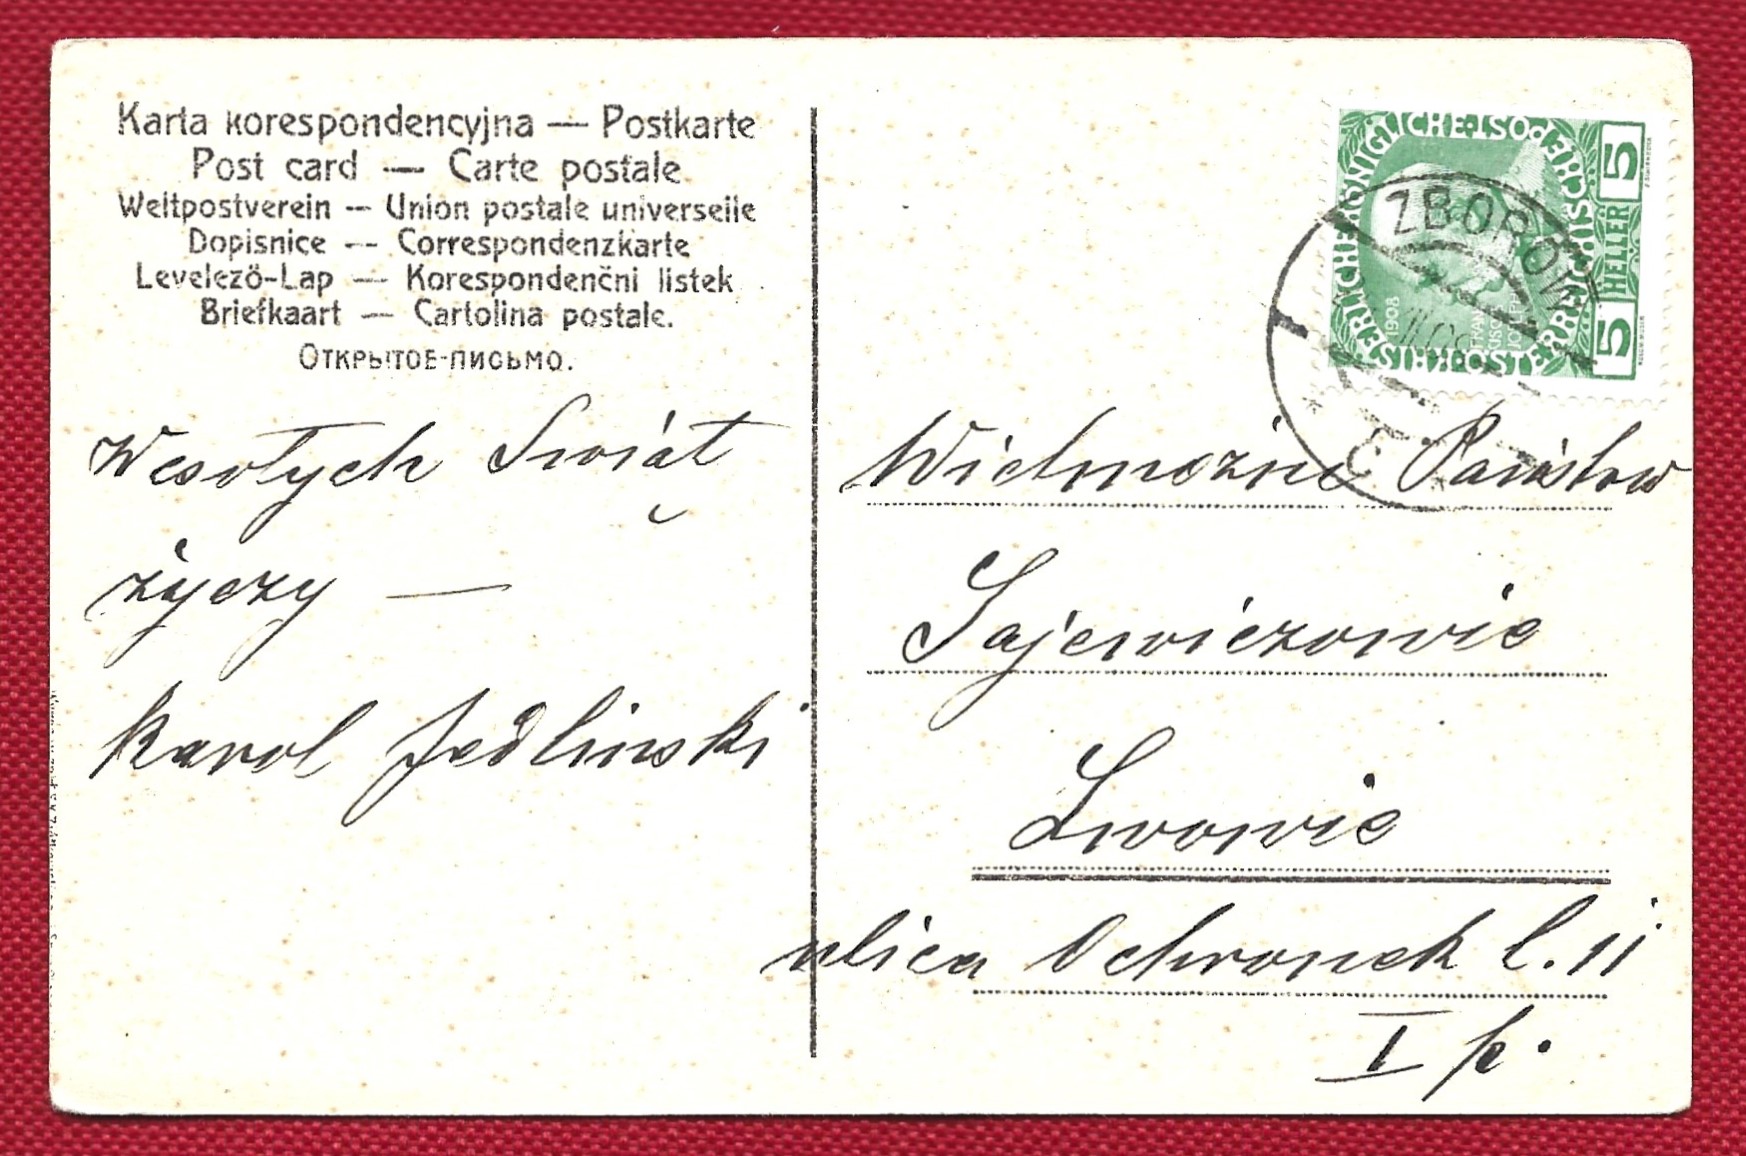 Karta korespondencyjna — Postkarte
Post card — Carte postale
Weltpostverein — Union postale universelle
Dopisnice — Correspondenzkarte
Levelező-Lap — Korespondenčni listek
Briefkaart — Cartolina postale.
Открытое-письмо.
Wesołych Swiąt
życzy —
Karol Jedlinski
KAISERLICHE KÖNIGLICHE ÖSTERREICHISCHE POST
5 HELLER 5
1908
ZBORÓW
Wielmożni Państwo
Sajewiczowie
Lwowie
ulica Ochronek l. 11
I p.